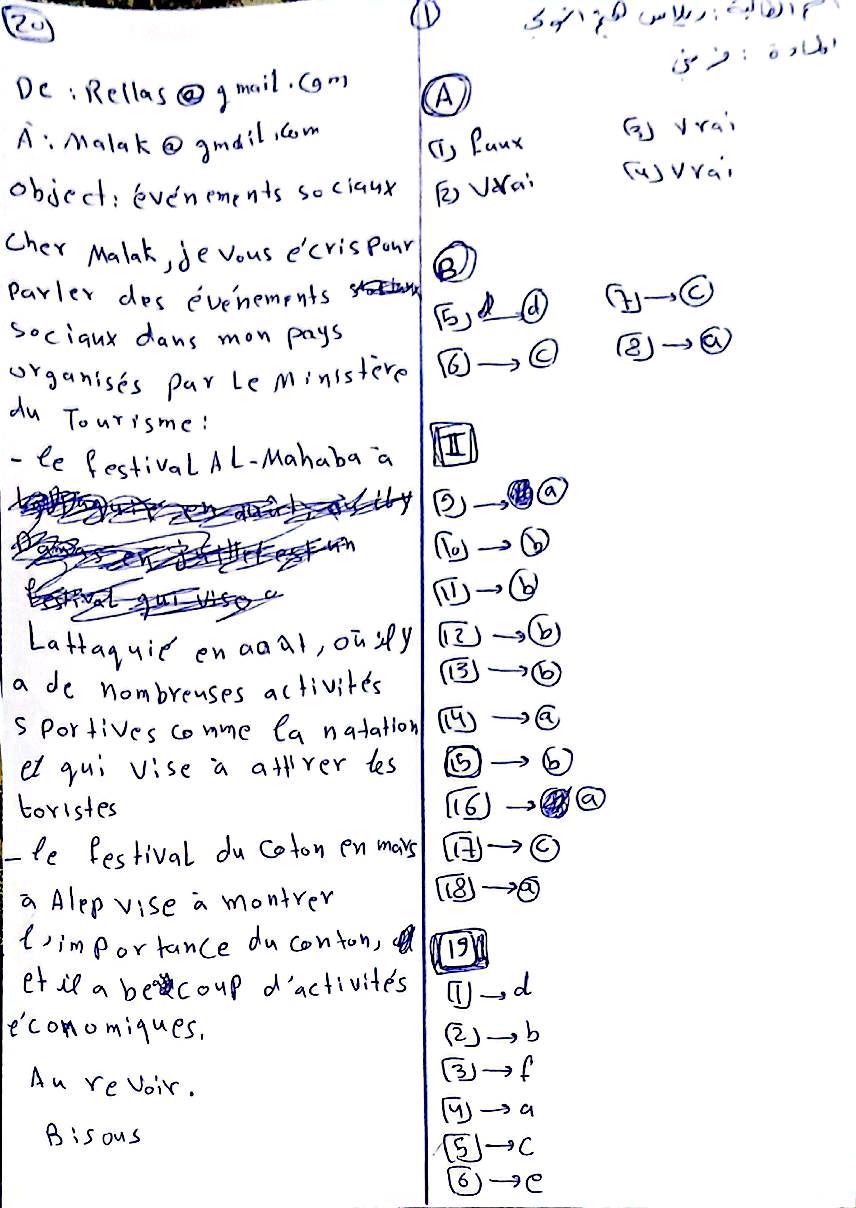 اسم الطالبة: ريلاس
المادة: فرنسي
1
A
1) faux
2) Vrai
3) Vrai
4) Vrai
B
5) d
6) → c
7) → c
8) → a
II
9) → a
10) → b
11) → b
12) → b
13) → b
14) → a
15) → b
16) → a
17) → c
18) → a
19
1) → d
2) → b
3) → f
4) → a
5) → c
6) → e
20
De : Rellas@gmail.com
À : Malak@gmail.com
object : événements sociaux
Cher Malak, je vous écris pour
parler des événements
sociaux dans mon pays
organisés par Le Ministère
du Tourisme :
- le festival AL-Mahaba à
Lattaquié en aaût, où il y
a de nombreuses activités
sportives comme la natation
et qui vise à attirer les
toristes
- le festival du Coton en mars
à Alep vise à montrer
l'importance du conton,
et il a beaucoup d'activités
économiques.
Au revoir.
Bisous